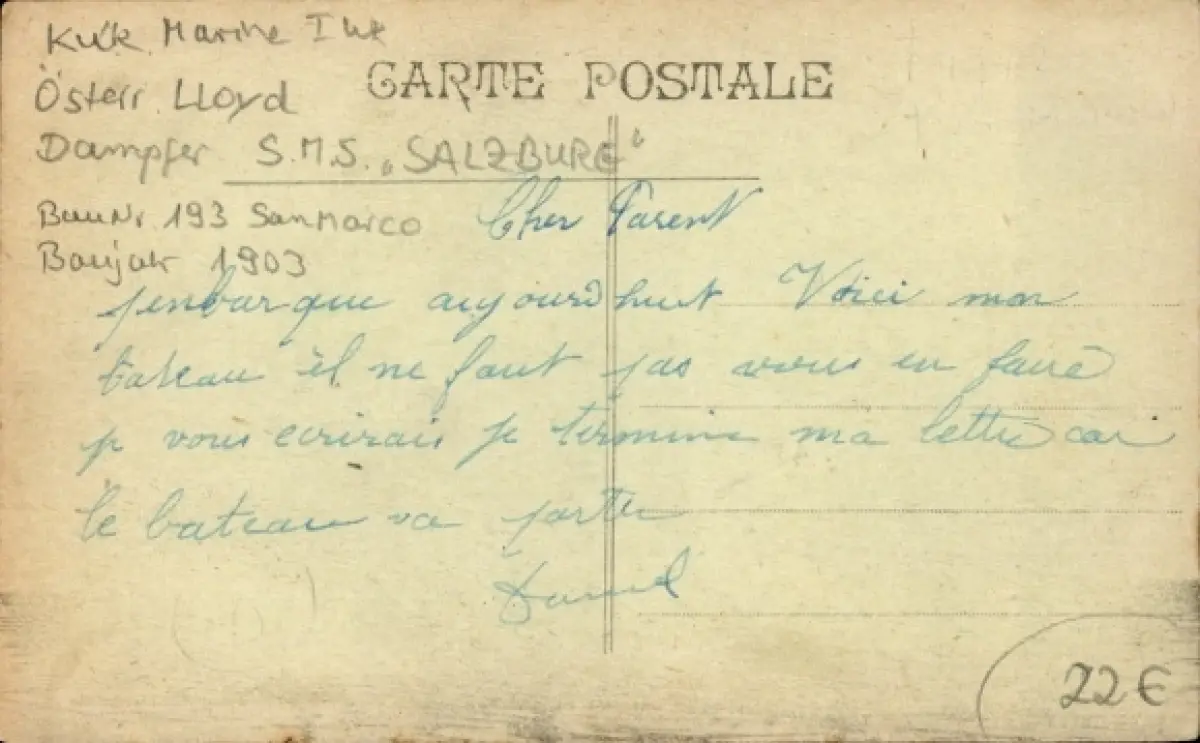 KuK Marine
CARTE POSTALE
Österr. Lloyd
Dampfer S.M.S. „SALZBURG“
BauNr. 193 San Marco
Baujahr 1903
Cher Parent
j'enbarque aujourd'huit Voici mon
bateau il ne faut pas vous en faire
je vous ecrirais je termine ma lettre car
le bateau va partir
Daniel
22€